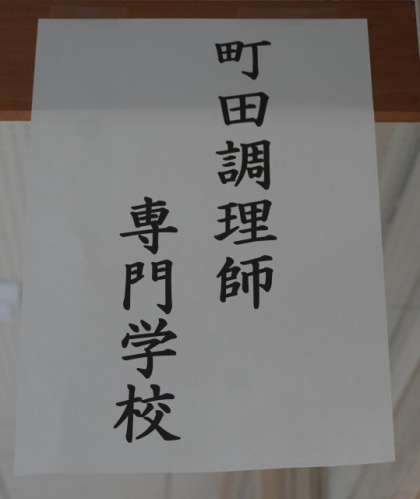 町田調理師
専門学校